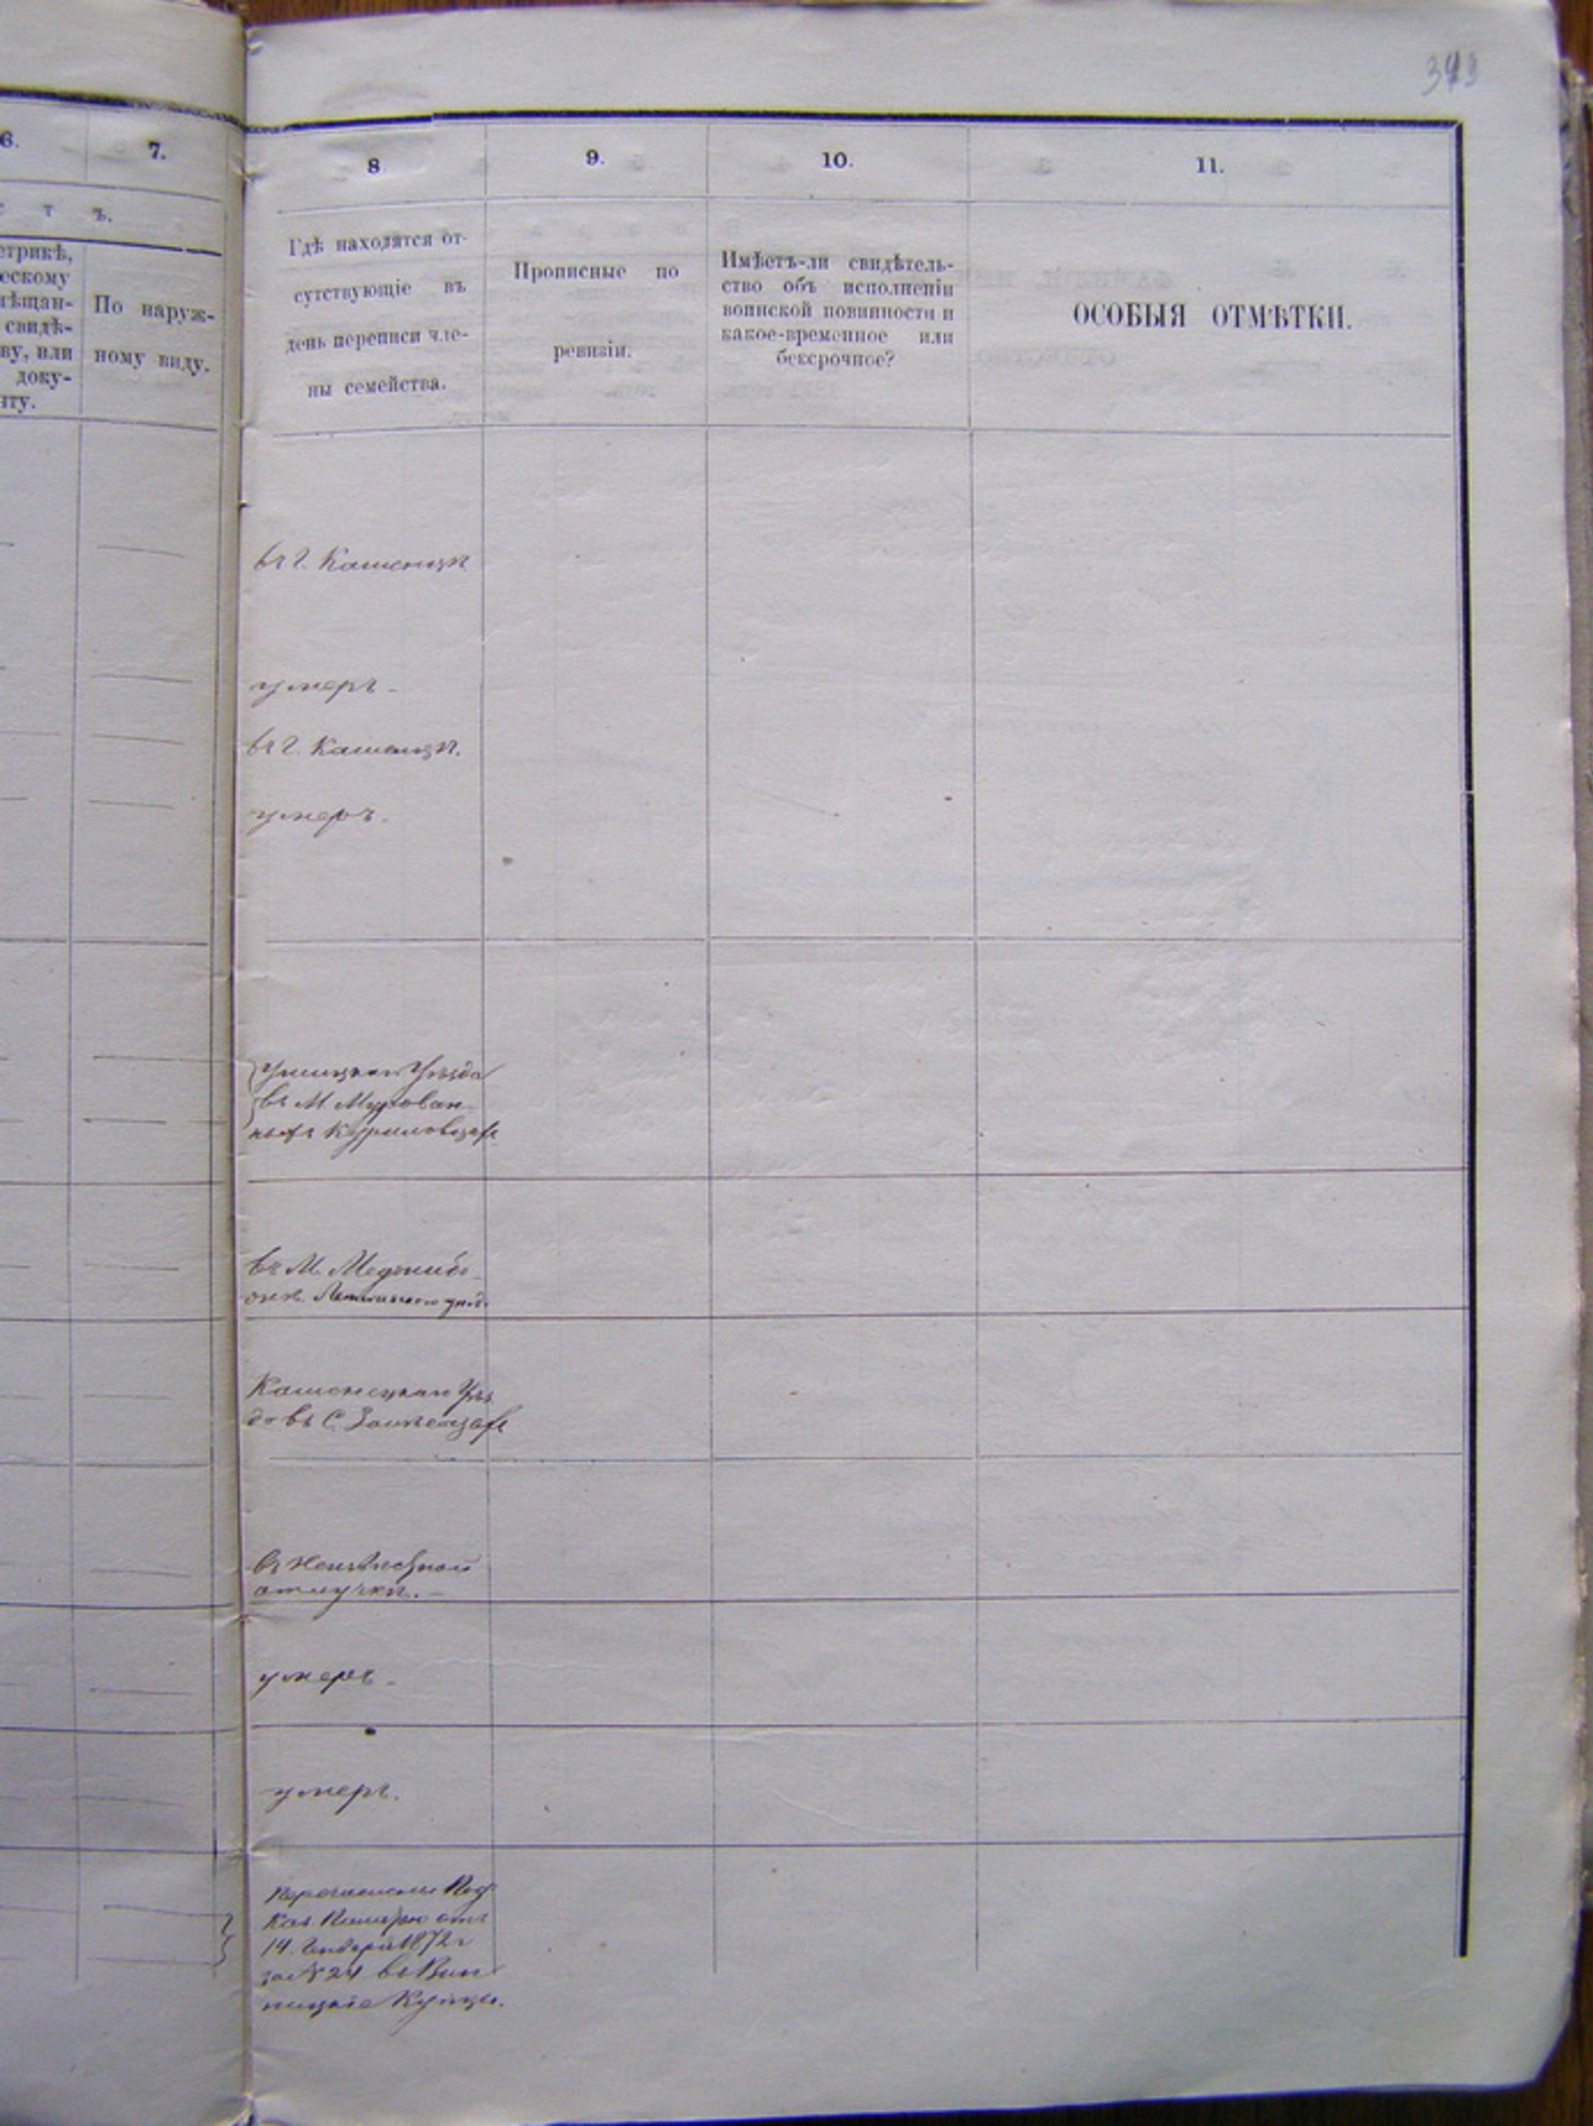 6.
7.
8
9.
10.
11.
с т ъ.
етрикѣ,
ескому
мѣщан-
свидѣ-
ву, или
доку-
нту.
По наруж-
ному виду.
Гдѣ находятся от-
сутствующіе въ
день переписи чле-
ны семейства.
Прописные по
ревизіи.
Имѣетъ-ли свидѣтель-
ство объ исполненіи
воинской повинности и
какое-временное или
безсрочное?
ОСОБЫЯ ОТМѢТКИ.
въ г. Каменцѣ
умеръ -
въ г. Каменцѣ.
умеръ.
Ушицкаго Уѣзда
въ М. Мурован-
ныхъ Куриловцахъ
въ М. Меджибо-
Каменецкаго Уѣз
да въ С.
въ неизвѣстной
отлучкѣ. -
умеръ -
умеръ.
перечислены Под.
Каз. Палатою отъ
14 Января 1872 г
за № 24 въ Вин
ницкіе Купцы.